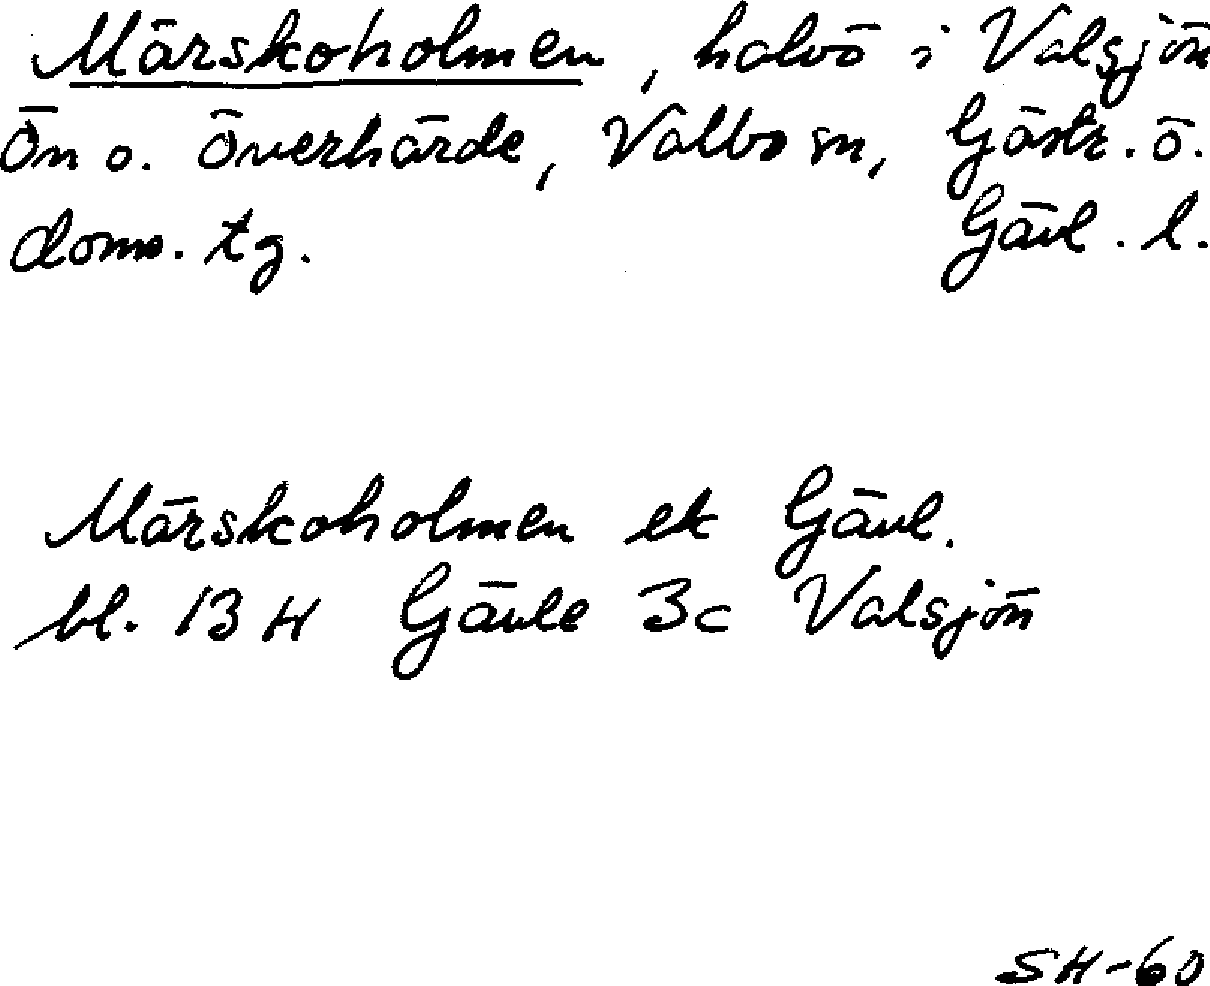 Märskoholmen, halvö i Valsjön
Ön o. Överhärde, Valbo sn, Gästr. ö.
doms. tg. Gävl. l.
Märskoholmen ek Gävl.
bl. 13 H Gävle 3c Valsjön
SH-60